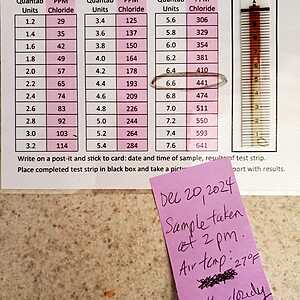 Quantab Units PPM Chloride Quantab Units PPM Chloride Quantab Units PPM Chloride
1.2 29 3.4 125 5.6 306
1.4 35 3.6 137 5.8 329
1.6 42 3.8 150 6.0 354
1.8 49 4.0 164 6.2 381
2.0 57 4.2 178 6.4 410
2.2 65 4.4 193 6.6 441
2.4 74 4.6 209 6.8 474
2.6 83 4.8 226 7.0 511
2.8 92 5.0 244 7.2 550
3.0 103 5.2 264 7.4 593
3.2 114 5.4 284 7.6 641
Write on a post-it and stick to card: date and time of sample, results of test strip.
Place completed test strip in black box and take a pictu port with results.
Dec 20, 2024
Sample taken
at 2 pm.
Air temp: 27°F